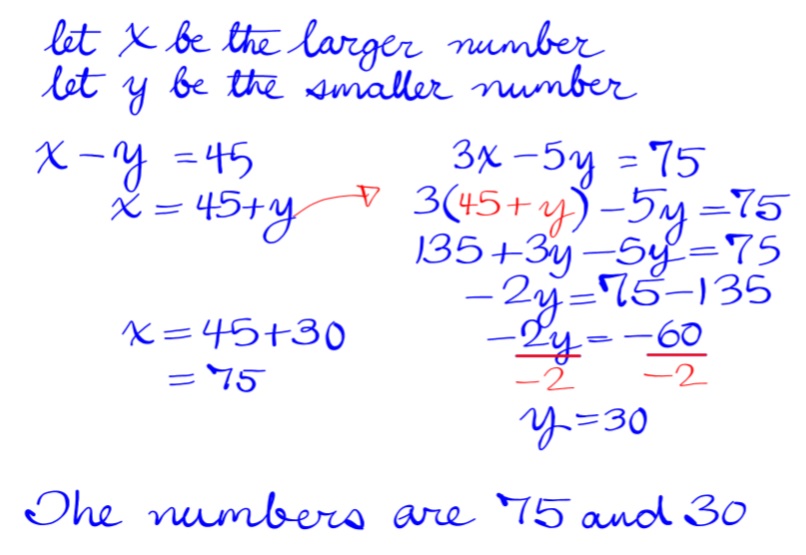 let x be the larger number
let y be the smaller number
x - y = 45
x = 45 + y
3x - 5y = 75
3(45 + y) - 5y = 75
135 + 3y - 5y = 75
-2y = 75 - 135
-2y = -60
-2 -2
y = 30
x = 45 + 30
= 75
The numbers are 75 and 30